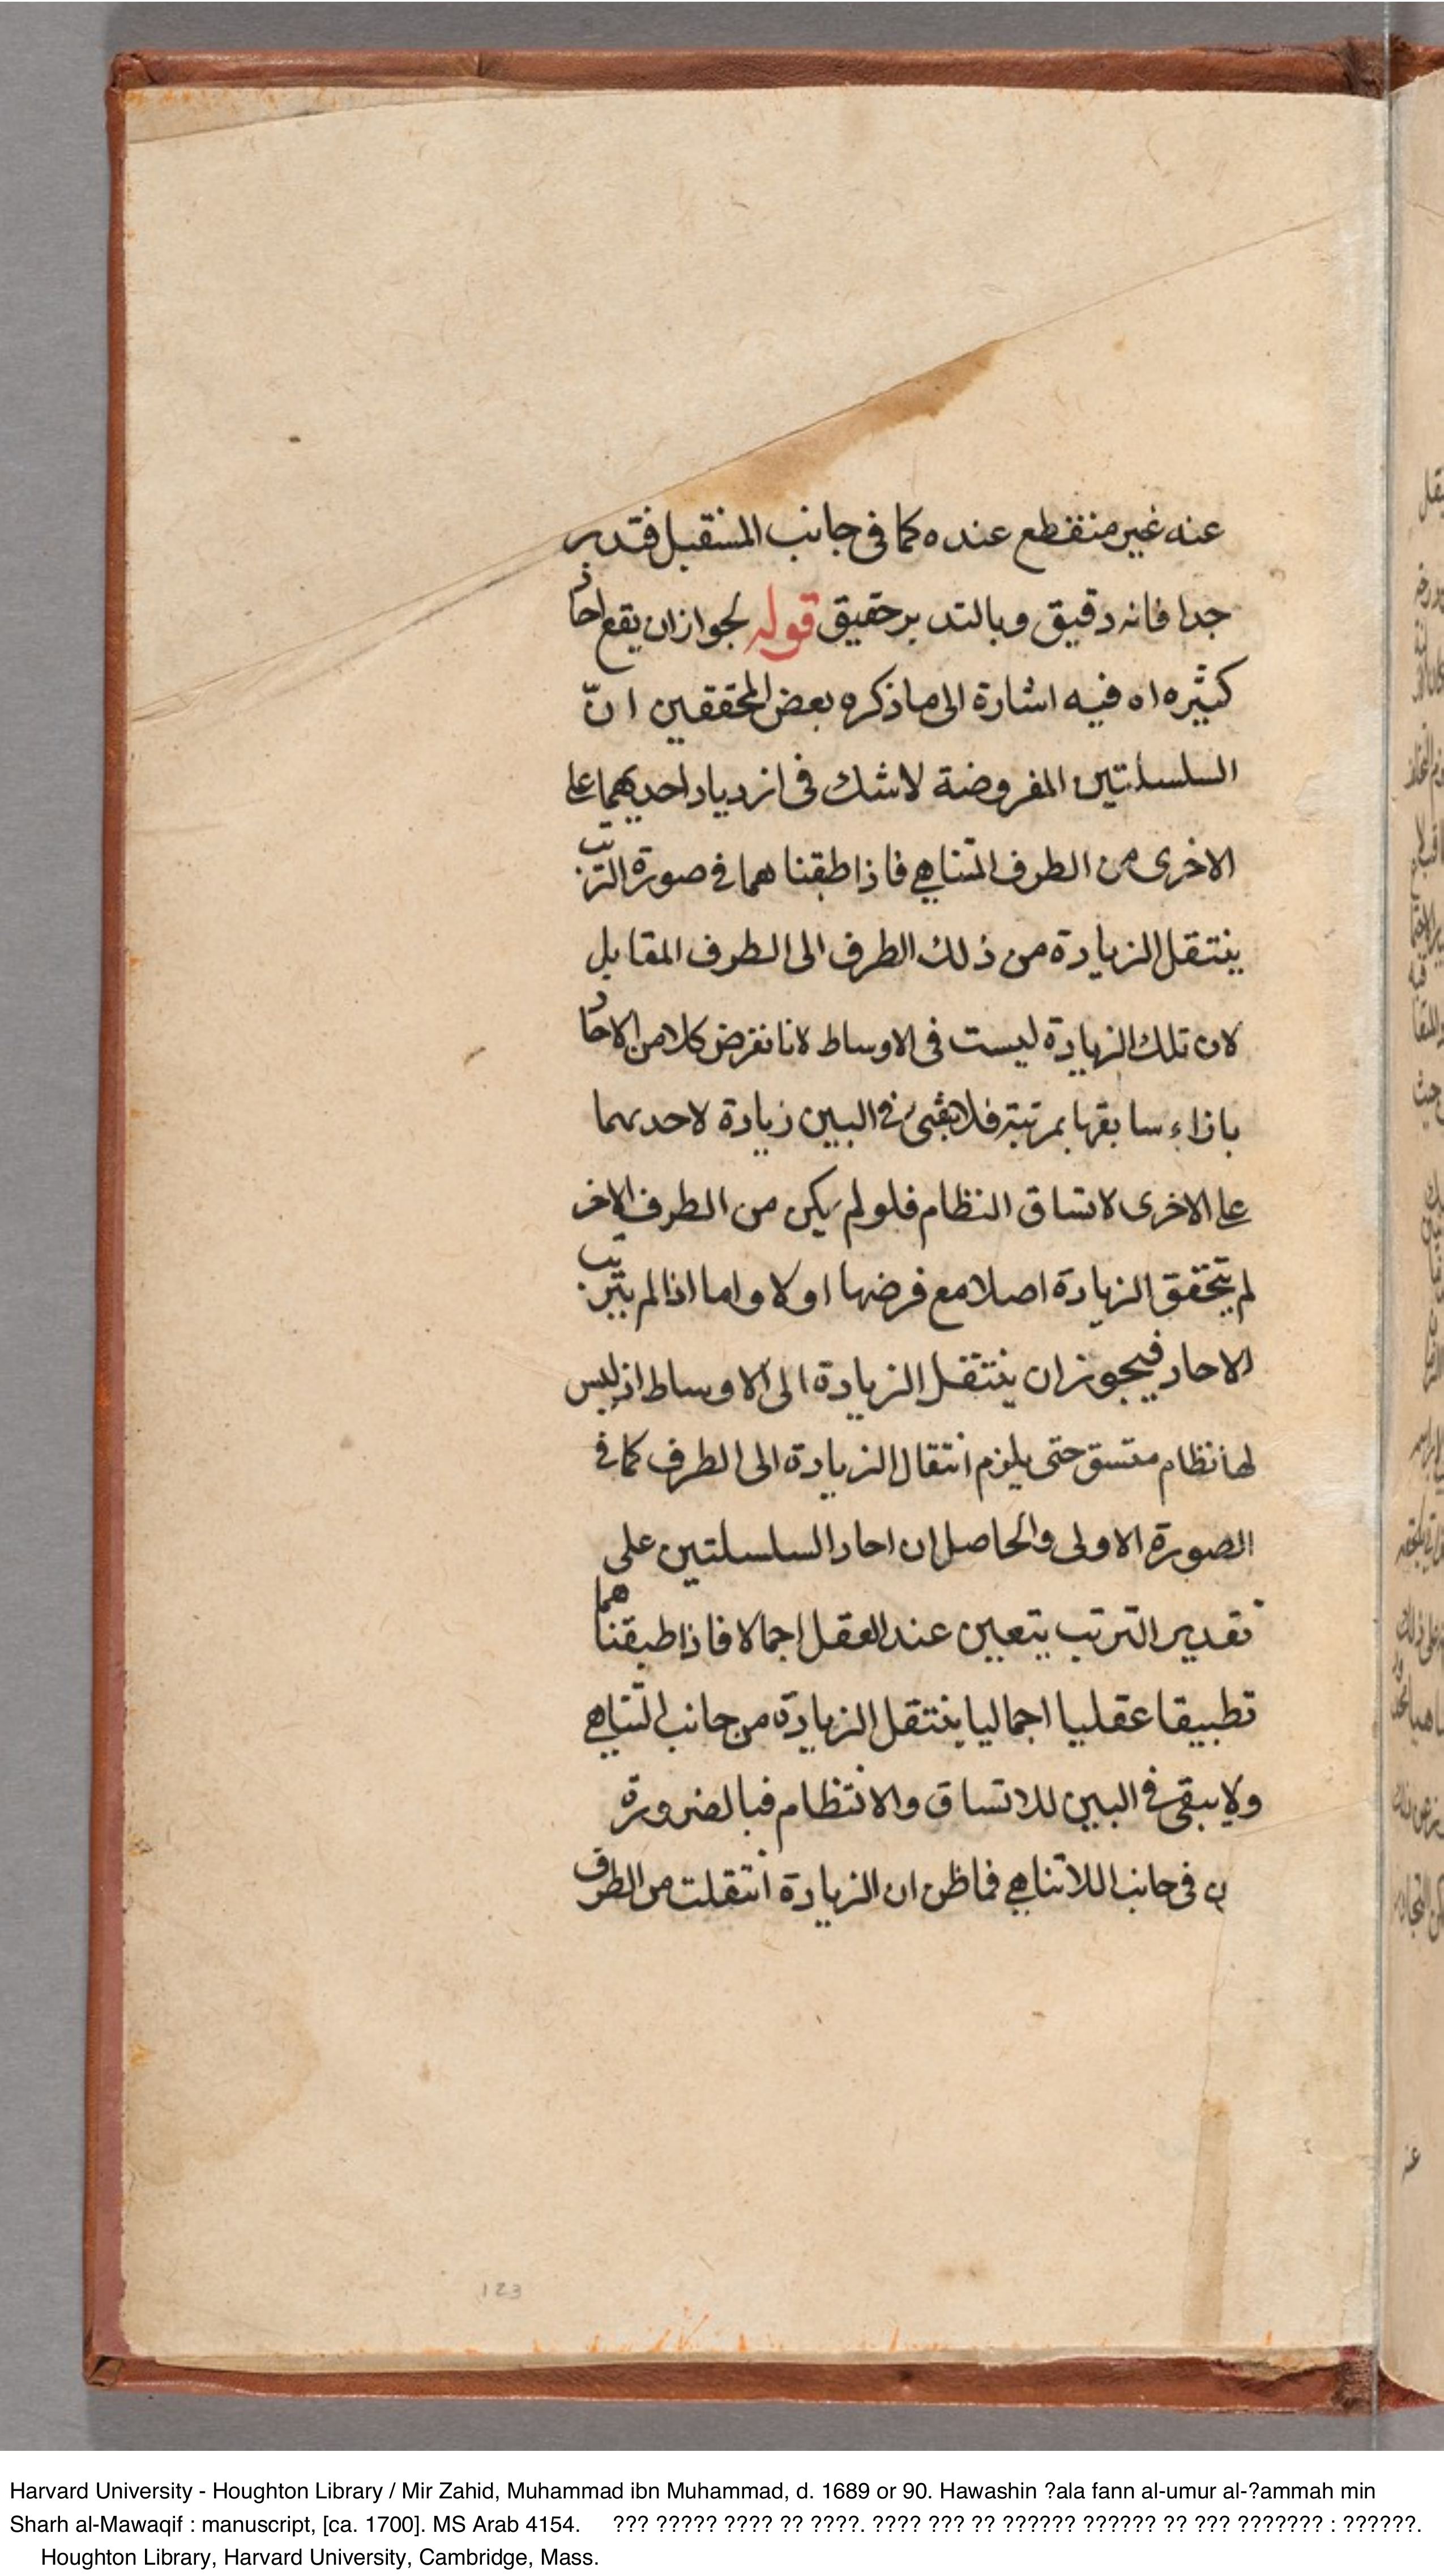 عنه غير منقطع عنده كما فى جانب المستقبل فتدبر
جدا فانه دقيق وبالتدبر حقيق قوله لجواز ان يقع احاد
كثيره اه فيه اشارة الى ما ذكره بعض المحققين انّ
السلسلتين المفروضة لا شك فى ازدياد احديهما على
الاخرى من الطرف المتناهى فاذا طبقنا هما فى صورة الترتب
ينتقل الزيادة من ذلك الطرف الى الطرف المقابل
لان تلك الزيادة ليست فى الاوساط لانا نفرض كلا من الاحاد
بازاء سابقها بمرتبة فلا يبقى فى البين زيادة لاحدىهما
على الاخرى لاتساق النظام فلو لم يكن من الطرف الاخر
لم يتحقق الزيادة اصلا مع فرضها اولا واما اذا لم يترتب
الاحاد فيجوز ان ينتقل الزيادة الى الاوساط اذ ليس
لها نظام متسق حتى يلزم انتقال الزيادة الى الطرف كما فى
الصورة الاولى والحاصل ان احاد السلسلتين على
تقدير الترتب يتعين عند العقل اجمالا فاذا طبقنا هما
تطبيقا عقليا اجماليا ينتقل الزيادة من جانب التناهى
ولا يبقى فى البين للاتساق والانتظام فبالضرورة
فى جانب اللاتناهى فما ظن ان الزيادة انتقلت من الطرف
123
Harvard University - Houghton Library / Mir Zahid, Muhammad ibn Muhammad, d. 1689 or 90. Hawashin ?ala fann al-umur al-?ammah min
Sharh al-Mawaqif : manuscript, [ca. 1700]. MS Arab 4154. ??? ????? ???? ?? ????. ???? ??? ?? ?????? ?????? ?? ??? ??????? : ??????.
Houghton Library, Harvard University, Cambridge, Mass.